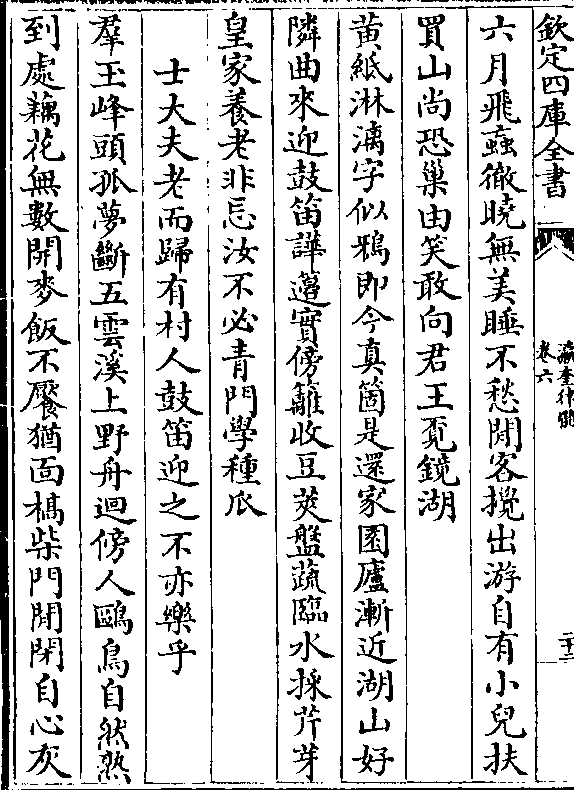 欽定四庫全書
瀛奎律髓
卷六
二十二
六月飛蟲徹曉無美睡不愁閒客攪出游自有小兒扶
買山尚恐巢由笑敢向君王覓鏡湖
黄紙淋漓字似鴉即今真箇是還家園廬漸近湖山好
隣曲來迎鼓笛譁邉實傍籬收豆莢盤蔬臨水採芹芽
皇家養老非忘汝不必青門學種瓜
士大夫老而歸有村人鼓笛迎之不亦樂乎
羣玉峰頭孤夢斷五雲溪上野舟迴傍人鷗鳥自然熟
到處藕花無數開麥飯不饜猶面槁柴門閒閉自心灰